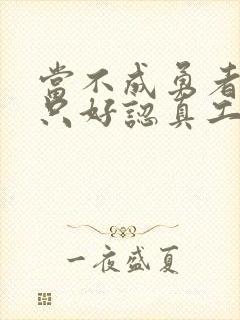 當不成勇者
只好認真工
一夜盛夏